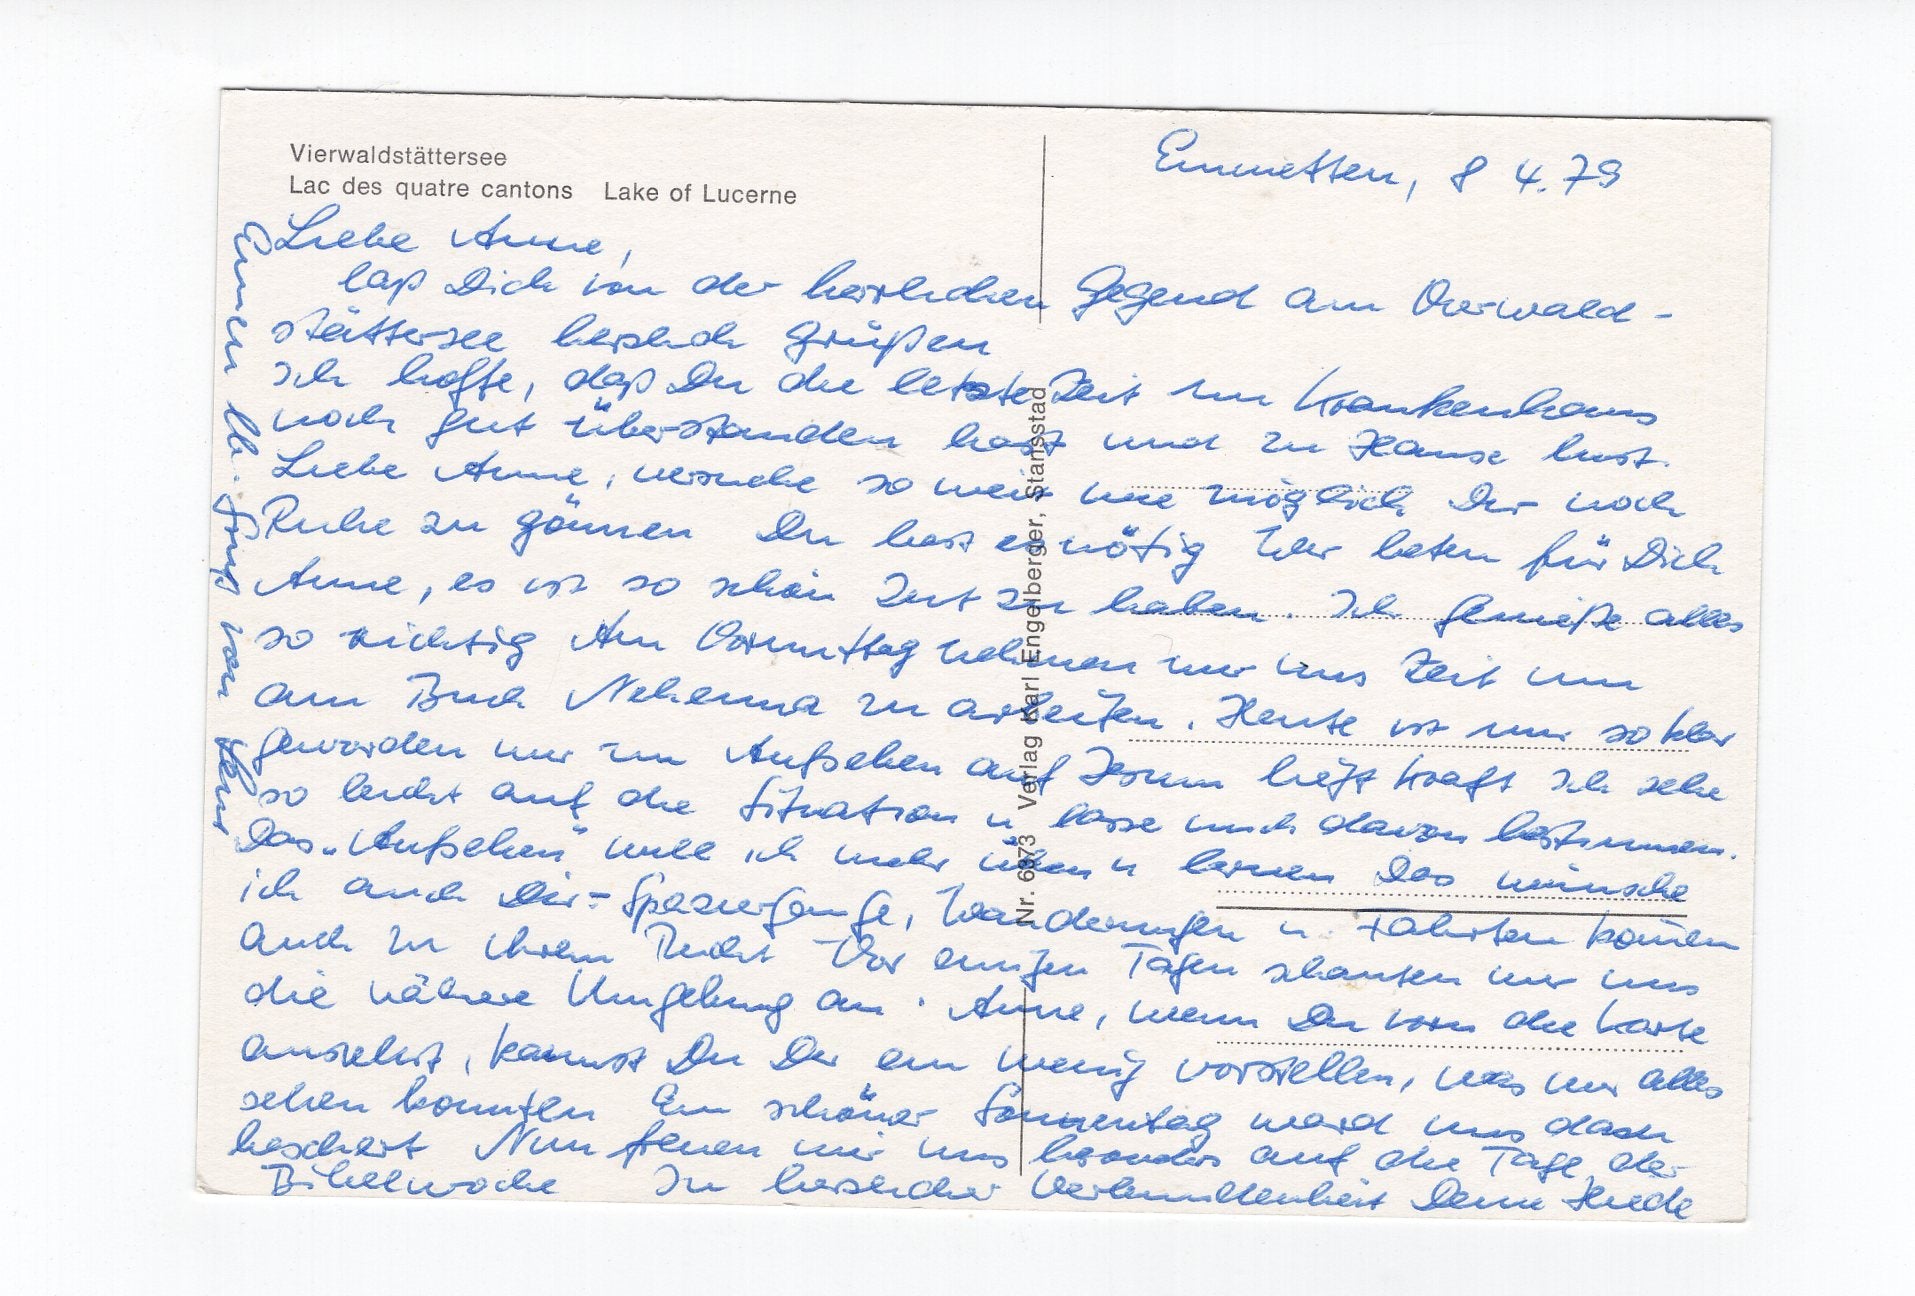 Vierwaldstättersee
Lac des quatre cantons Lake of Lucerne
Emmetten, 8 4.79
Liebe Anne,
laß Dich von der herrlichen Gegend am Vierwald-
stättersee herzlich grüßen
Ich hoffe, daß Du die letzte Zeit im Krankenhaus
noch gut überstanden hast und zu Hause bist.
Liebe Anne, versuche so weit wie möglich Dir noch
Ruhe zu gönnen Du hast es nötig Wir beten für Dich
Anne, es ist so schön Zeit zu haben. Ich genieße alles
so richtig Am Vormittag nehmen wir uns Zeit um
am Buch Nehemia zu arbeiten. Heute ist mir so klar
geworden nur im Aufsehen auf Jesum liegt Kraft Ich sehe
so leicht auf die Situation u. lasse mich davon bestimmen.
Das „Aufsehen" will ich mehr üben u lernen Das wünsche
ich auch Dir - Spaziergänge, Wanderungen u. Fahrten kommen
auch zu ihrem Recht Vor einigen Tagen schauten wir uns
die nähere Umgebung an. Anne, wenn Du vorn die Karte
ansiehst, kannst Du Dir ein wenig vorstellen, was wir alles
sehen konnten Ein schöner Sonnentag ward uns dazu
beschert Nun freuen wir uns besonders auf die Tage der
Bibelwoche In herzlicher Verbundenheit Deine
Einen lb. Gruß von
Nr. 6373 Verlag Karl Engelberger, Stansstad